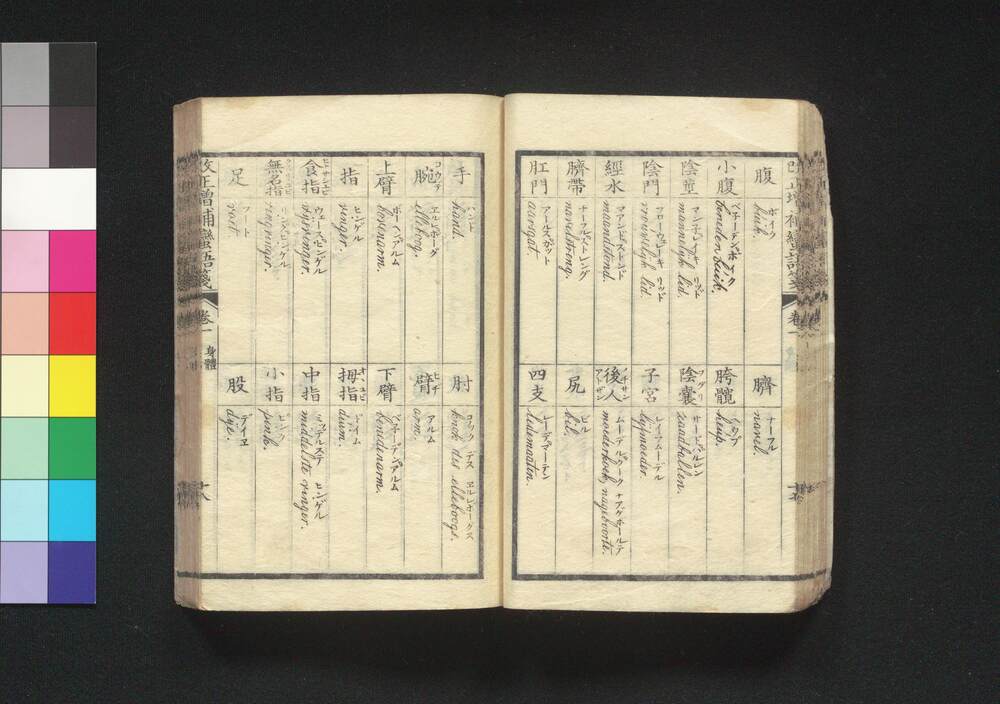 腹
ボイク
buik.
小腹
ベネーデンボイク
beneden buik.
陰莖
マンネレイキ リット
mannelijk lid.
陰門
フローウェレイキ リット
vrouwelijk lid.
經水
マアンドストンド
maandstond.
臍帶
ナーフルストレング
navelstreng.
肛門
アールスガット
aarsgat.
臍
ナーフル
navel.
胯髖
ヒュップ
heup.
陰囊
フグリ
zaadballen.
子宮
レイフムードル
lijfmoeder.
後人
ノチザン
アトザン
moederkoek, nageboorte.
尻
ビル
bil.
四支
レーデマーテン
ledematen.
手
ハンド
hand.
腕
コウデ
エルレボーグ
elleboog.
上臂
ボーヘンアルム
bovenarm.
指
ヒンゲル
vinger.
食指
ヒトサシユビ
ウェースヒンゲル
wijsvinger.
無名指
リングヒンゲル
ringvinger.
足
フート
voet.
肘
コノック デス エルレボーグス
knok des elleboogs.
臂
ヒヂ
アルム
arm.
下臂
ベネーデンアルム
benedenarm.
拇指
オヤユビ
ドイム
duim.
中指
ミッデルステ ヒンゲル
middelste vinger.
小指
ピンク
pink.
股
デイエ
dije.
改正增補蠻語箋
卷一
身體
十八